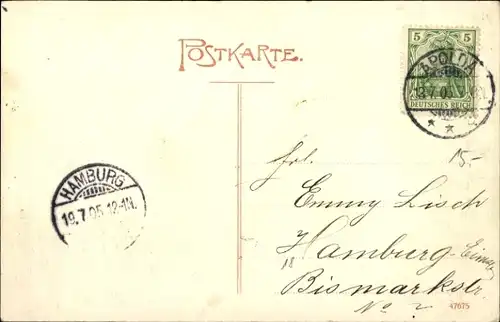 POSTKARTE.
5
DEUTSCHES REICH
APOLDA
15.-
Frl.
Emmy Lisch
HAMBURG
19.7.05.12-1N.
Hamburg-
18
Bismarkstr.
No. 2
47675